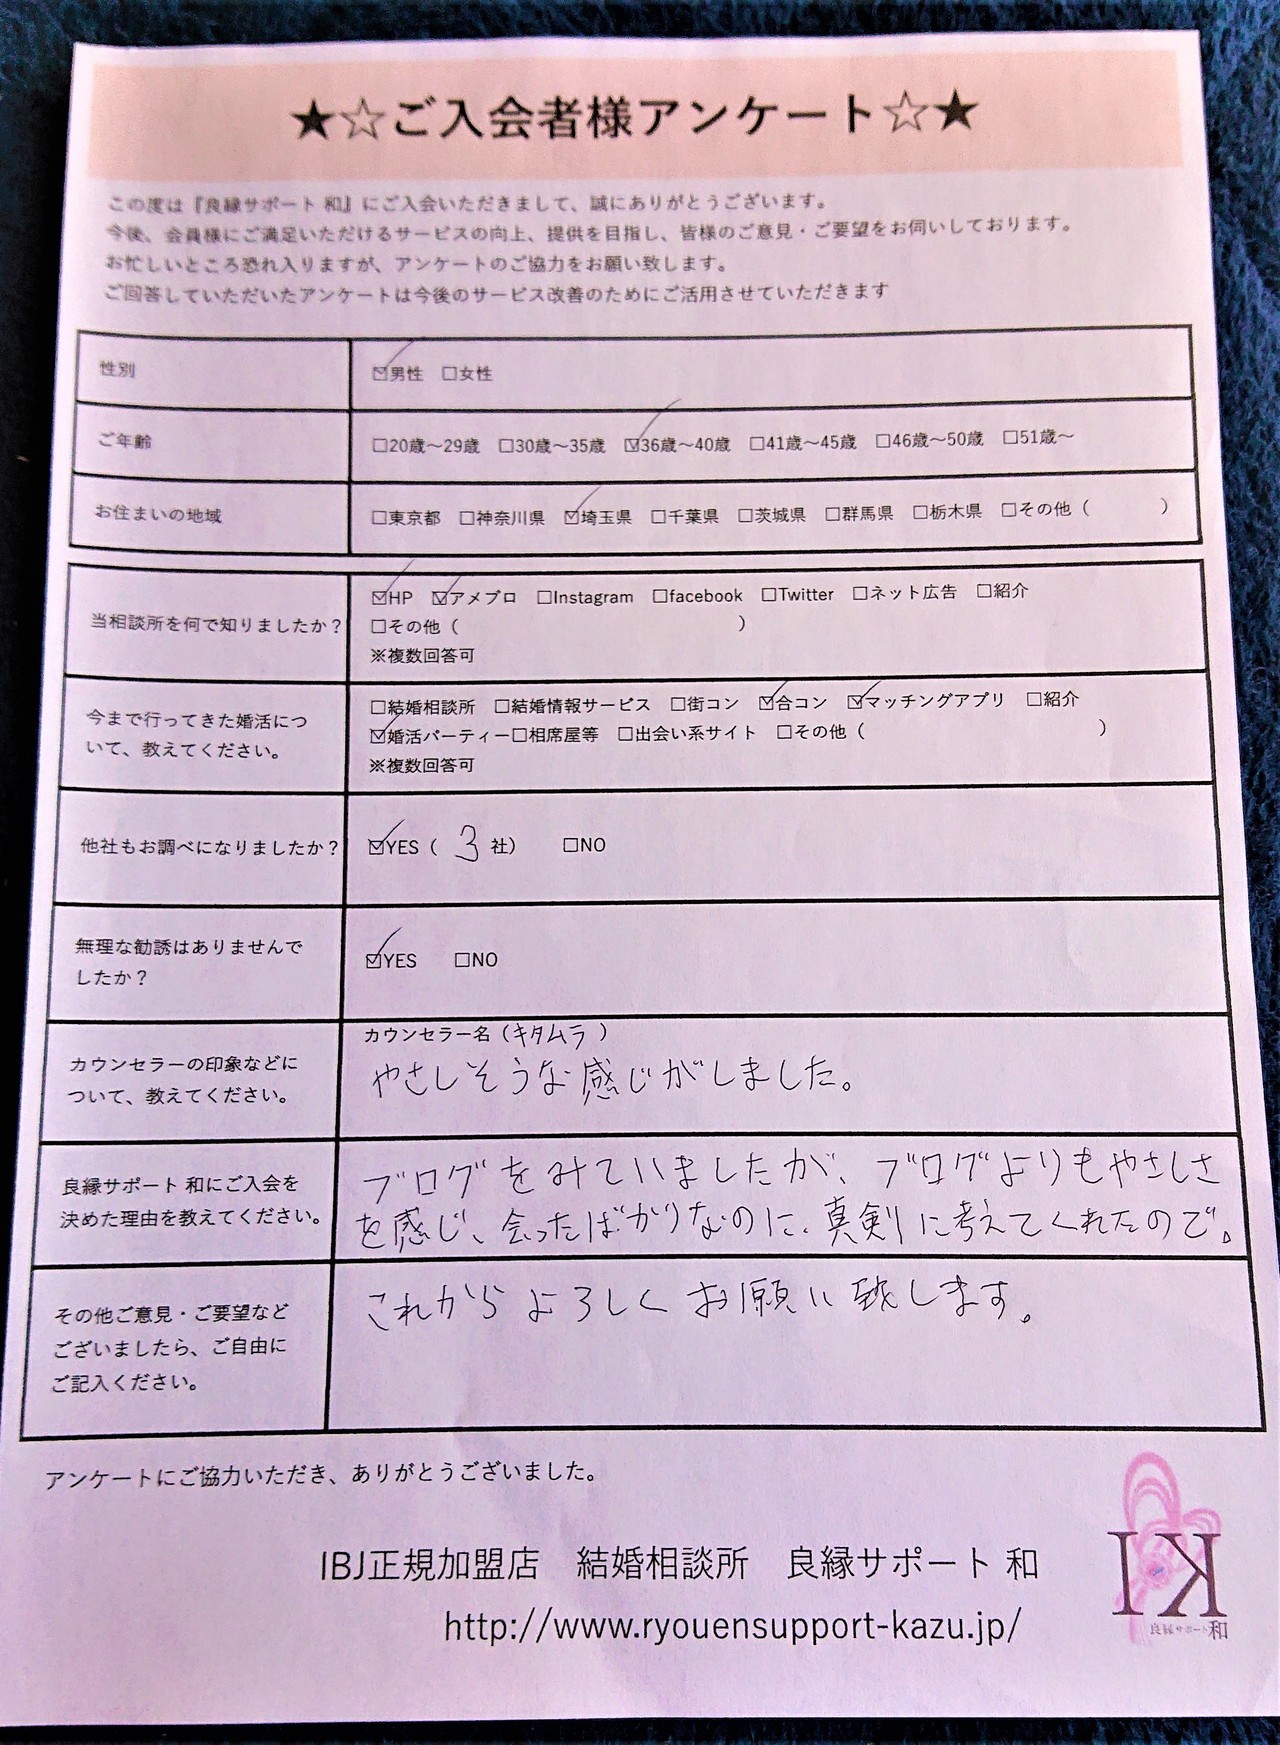 ★☆ご入会者様アンケート☆★
この度は『良縁サポート 和』にご入会いただきまして、誠にありがとうございます。
今後、会員様にご満足いただけるサービスの向上、提供を目指し、皆様のご意見・ご要望をお伺いしております。
お忙しいところ恐れ入りますが、アンケートのご協力をお願い致します。
ご回答していただいたアンケートは今後のサービス改善のためにご活用させていただきます
性別
☑男性 ☐女性
ご年齢
☐20歳～29歳 ☐30歳～35歳 ☑36歳～40歳 ☐41歳～45歳 ☐46歳～50歳 ☐51歳～
お住まいの地域
☐東京都 ☐神奈川県 ☑埼玉県 ☐千葉県 ☐茨城県 ☐群馬県 ☐栃木県 ☐その他（ ）
当相談所を何で知りましたか？
☑HP ☑アメブロ ☐Instagram ☐facebook ☐Twitter ☐ネット広告 ☐紹介
☐その他（ ）
※複数回答可
今まで行ってきた婚活につ
いて、教えてください。
☐結婚相談所 ☐結婚情報サービス ☐街コン ☑合コン ☑マッチングアプリ ☐紹介
☑婚活パーティー☐相席屋等 ☐出会い系サイト ☐その他（ ）
※複数回答可
他社もお調べになりましたか？
☑YES（ 3 社） ☐NO
無理な勧誘はありませんで
したか？
☑YES ☐NO
カウンセラーの印象などに
ついて、教えてください。
カウンセラー名（キタムラ ）
やさしそうな感じがしました。
良縁サポート 和にご入会を
決めた理由を教えてください。
ブログをみていましたが、ブログよりもやさしさ
を感じ、会ったばかりなのに、真剣に考えてくれたので。
その他ご意見・ご要望など
ございましたら、ご自由に
ご記入ください。
これからよろしくお願い致します。
アンケートにご協力いただき、ありがとうございました。
IBJ正規加盟店 結婚相談所 良縁サポート 和
http://www.ryouensupport-kazu.jp/
IK
良縁サポート和